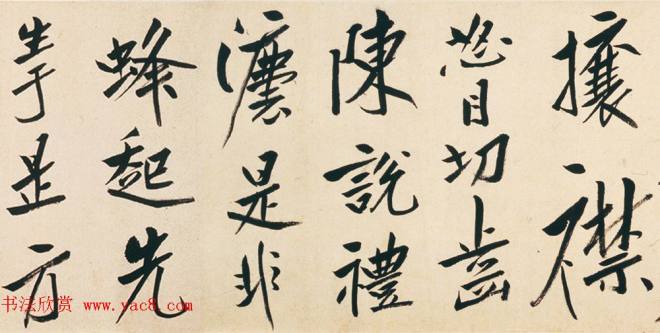 攘襟
怒目切齒
陳說禮
灋是非
蜂起先
生于是方
书法欣赏 www.yac8.com